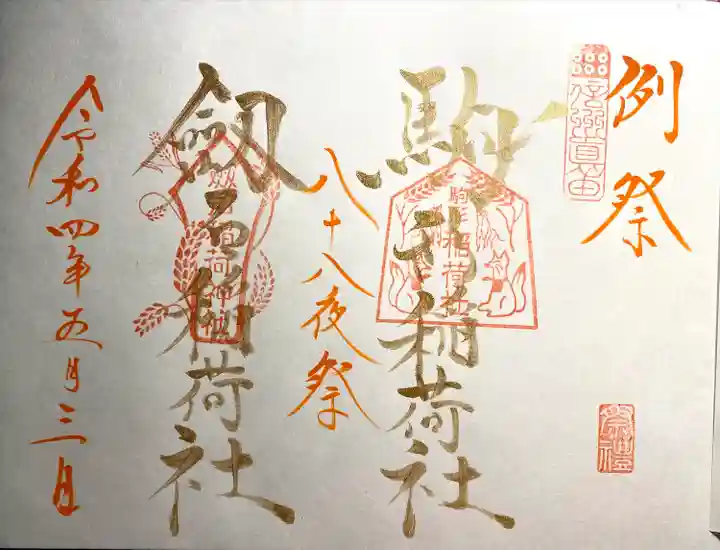 例祭
信州真田
祭禮
駒形稲荷社
駒形稲荷社
八十八夜祭
稲荷社
稲荷神社
令和四年五月三日